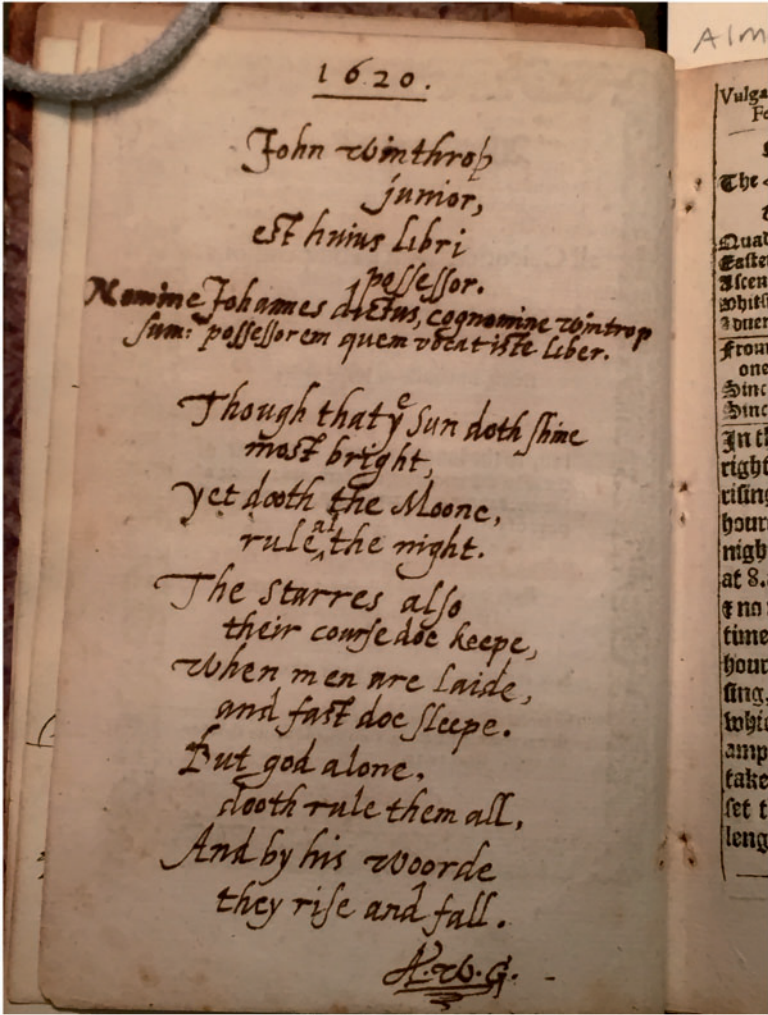 1620.
John Winthrop
junior,
est huius libri
possessor.
Nomine Johannes dictus, cognomine wintrop
sum: possessorem quem vocat iste liber.
Though that yͤ Sun doth shine
most bright,
yet dooth the Moone,
rule, al the night.
The starres also
their course doe keepe,
When men are laide,
and fast doe sleepe.
But god alone,
dooth rule them all,
And by his woorde
they rise and fall.
A.W.G.
Alm
Vulga
Fe
The
Quad
Easte
Ascen
whits
Aduen
From
one
Sinc
Sinc
In th
right
rising
hour
nigh
at 8.
& no
time
hour
sing,
whic
amp
take
set t
leng